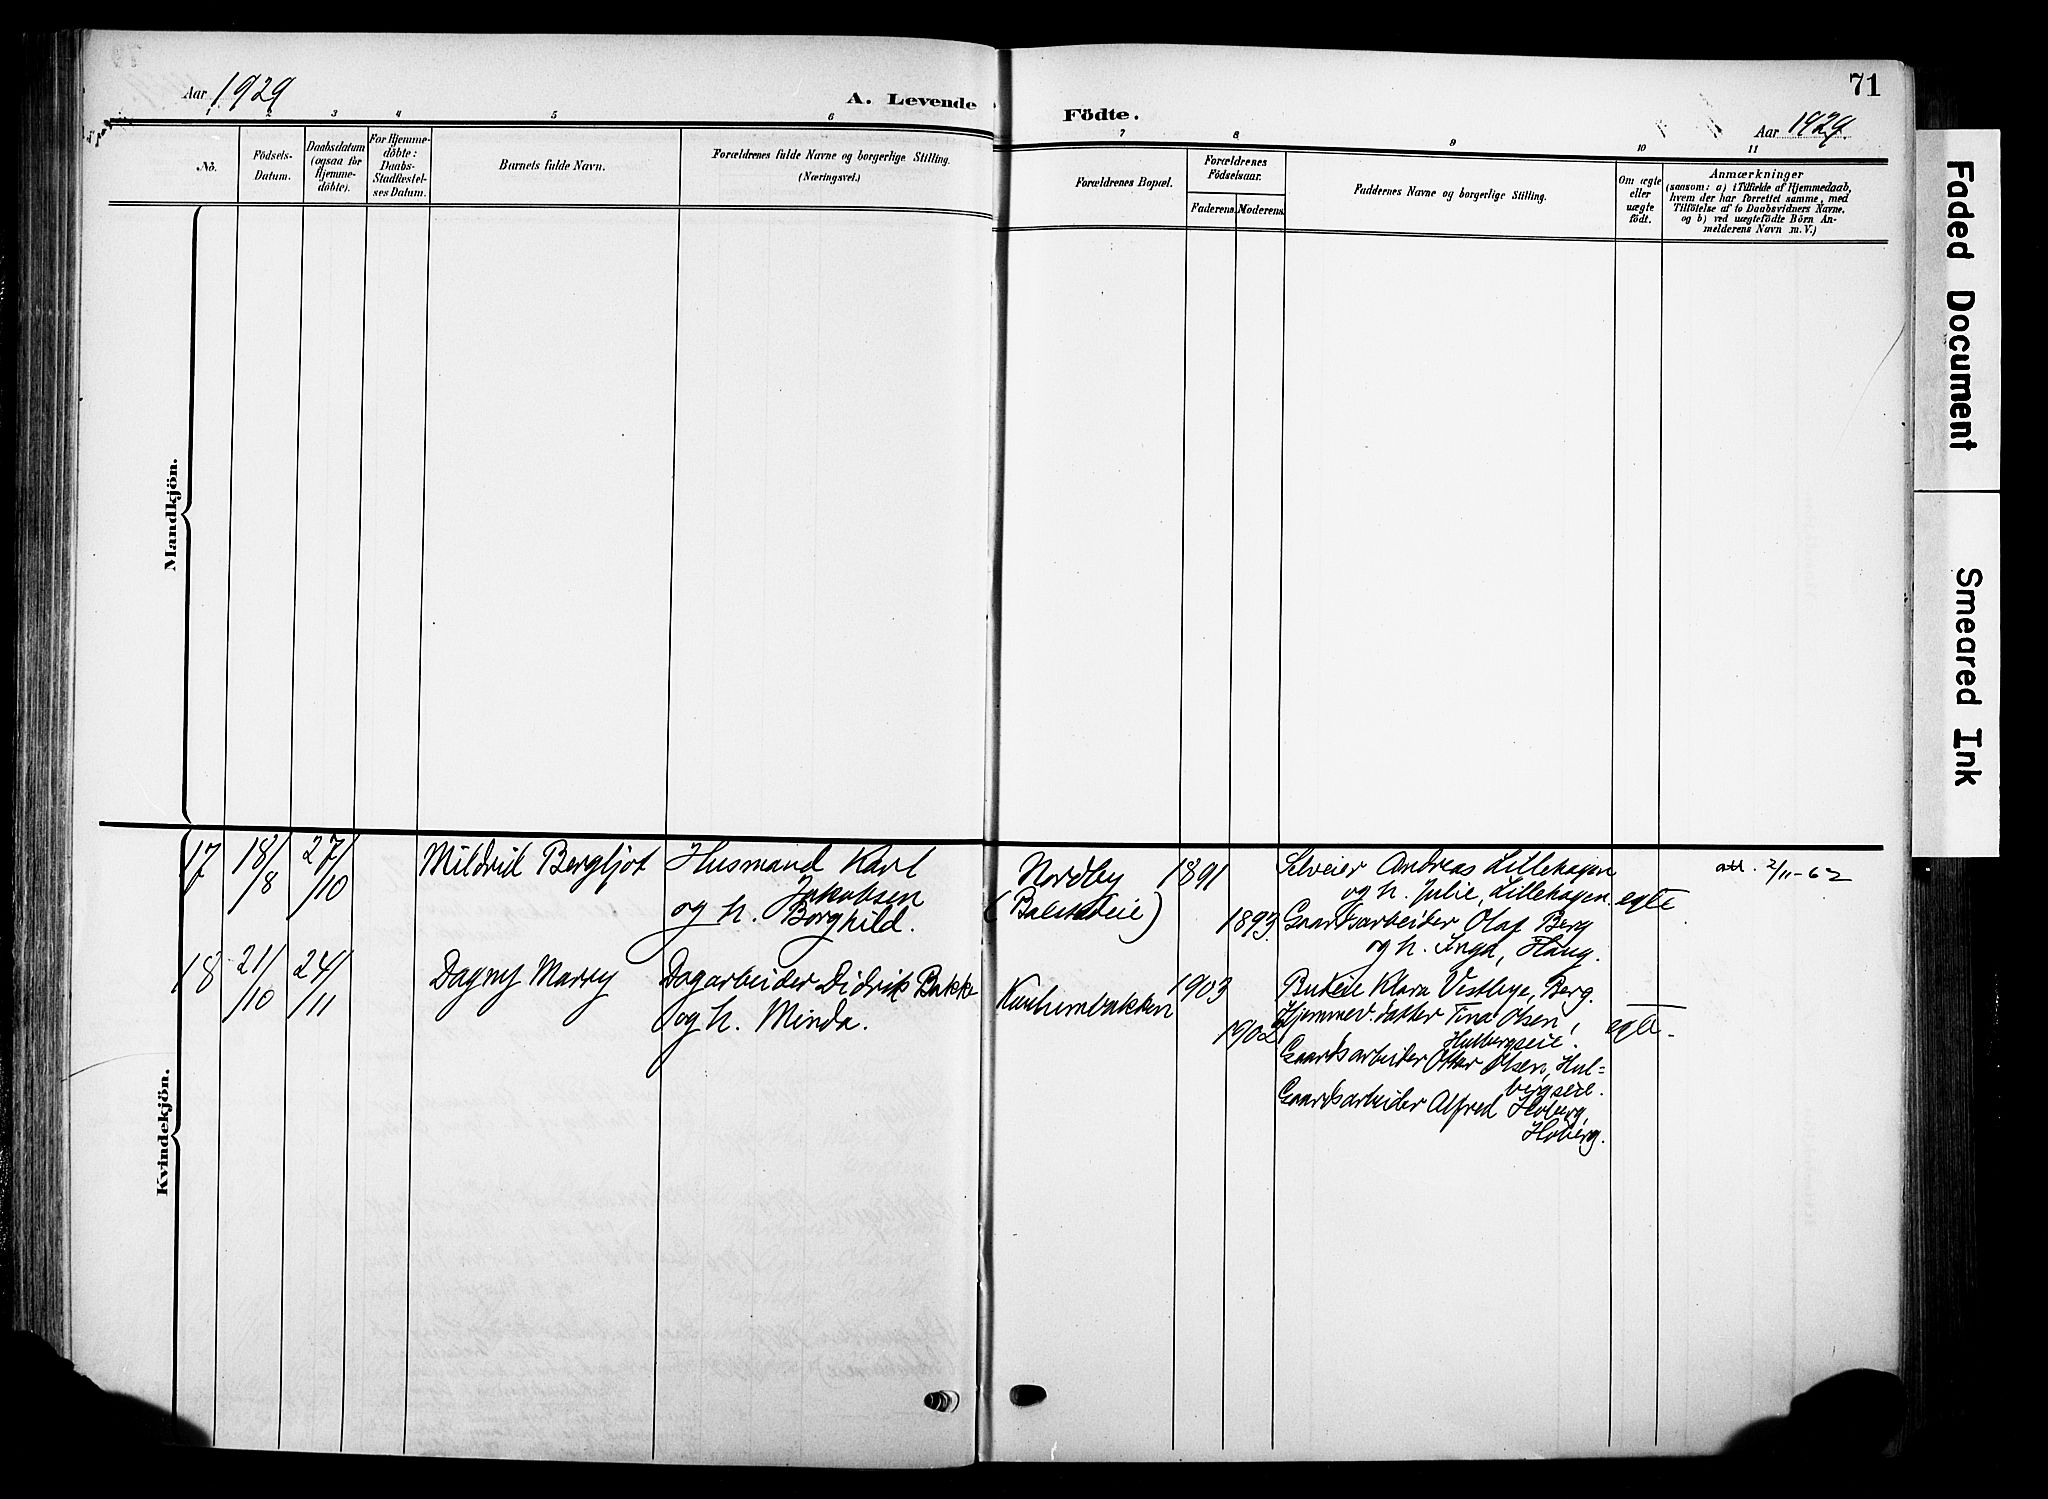 Aar 1929
A. Levende
Födte.
71
Aar 1929.
1 2 3 4 5 6 7 8 9 10 11
No.
Födsels-
Datum.
Daabsdatum
(ogsaa för
Hjemme-
döbte).
For Hjemme-
döbte:
Daabs-
Stadfæstel-
ses Datum.
Barnets fulde Navn.
Forældrenes fulde Navne og borgerlige Stilling.
(Næringsvei.)
Forældrenes Bopæl.
Forældrenes
Födselsaar.
Faderens.
Moderens.
Faddernes Navne og borgerlige Stilling.
Om ægte
eller
uægte
födt.
Anmærkninger
(saasom: a) i Tilfælde af Hjemmedaab,
hvem der har forrettet samme, med
Tilföielse af to Daabsvidners Navne,
og b) ved uægtefödte Börn An-
melderens Navn m. V.)
Mandkjön.
Kvindekjön.
17
18/8
27/10
Mildrid Bergljot
Husmand Karl
Jakobsen
og h. Borghild.
Nordby
1891
1893.
Selveier Andreas Lillehagen
og h. Julie, Lillehagen.
Gaardsarbeider Olaf Berg
og h. Inga, Haug.
egte.
att. 2/11-62
18
21/10
24/11
Dagny Marry
Dagarbeider Didrik Bakke
og h. Minda.
1903
1902
Pukeie Klara Vestbye, Berg.
Hjemmev. datter Tina Olsen,
Hulbergseie.
Gaardsarbeider Ottar Olsen, Hul=
bergseie.
Gaardsarbeider Alfred Hoberg,
Hoberg.
egte.
Faded Document
Smeared Ink